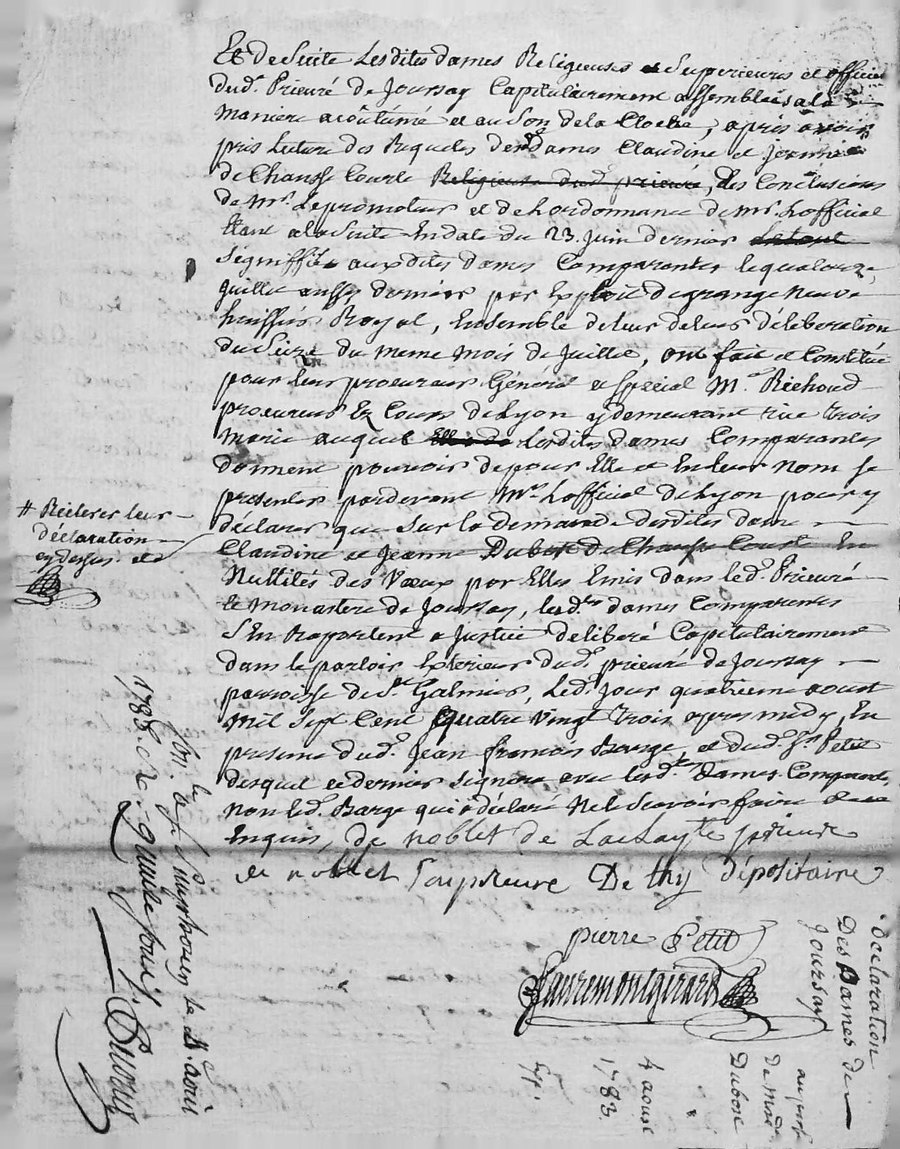 Et de Suite Lesdites dames Religieuses et Superieures et officier
dud. Prieuré de Joursay Capitulairement assemblées a la
maniere acoutumé et au Son de la Cloche, après avoir
pris Lecture des Requetes desd. dames Claudine et Jeanne
de Chausse Courte Religieuse dud. prieuré, des Conclusions
de Mr. Le promoteur et de Lordonnance de Mr. Lofficial
Etant a la Suite En date du 23. Juin dernier
Signiffiée auxdites dames Comparantes le quatorze
juillet aussy dernier par Exploit de grange neuve
huissier Royal, Ensemble de leur deliberation
du Seize du meme mois de Juillet, ont fait et Constitué
pour leur procureur Général et Special Me. Richoud
procureur Ez Cours de Lyon y demeurant rue trois
Marie auquel Lesdites dames Comparantes
donnent pouvoir de pour Elle et En leur nom Se
presenter pardevant Mr. Lofficial de Lyon pour y
# Réiterer leur
déclaration
cy dessus et
déclarer que Sur la Demande desdites dame
Claudine et Jeanne Dubost de Chausse Courte En
Nullités des Vœux par Elles Emis dans led. Prieuré
et Monastere de Joursay, lesd. dames Comparantes
S'En raportent a Justice délibéré Capitulairement
dans le parloir Exterieur dud. prieuré de Joursay
parroisse de St. Galmier, Led. Jour quatrieme aoust
mil Sept Cent quatre Vingt trois apres midy, En
presence dud. Jean francois Barge, et dud. Sr. Petit
desquel ce dernier Signera avec lesd. Dames Comparantes
non led. Barge qui a declaré ne le Scavoir faire de ce
Enquis, de noblet de prieure
de noblet Souprieure De thy dépositaire
pierre Petit
fauremontgirard
déclaration
Des Dames de
Joursay
Dubost
4 aoust
1783
1783